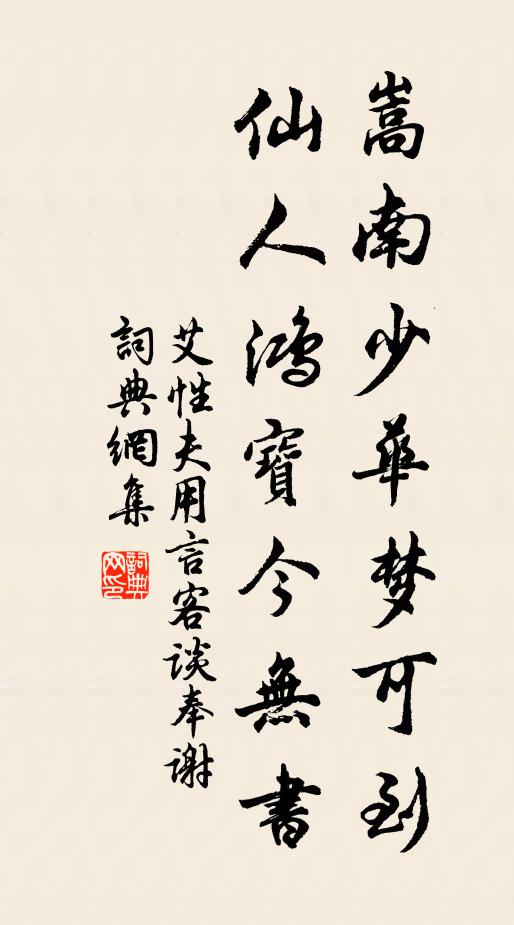 嵩南少華梦可到
仙人鴻寶今無書
艾性夫用言客談奉謝
詞典網集
詞典網印